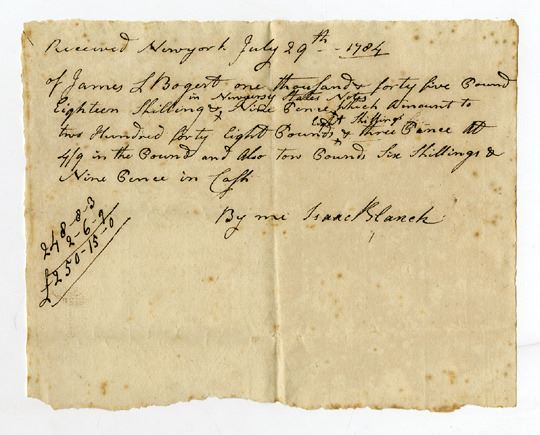 Received Newyork July 29th - 1784
of James L Bogert one thousand & forty five Pound
in Newjersey States Notes
Eighteen Shilling & Nine Pence which Amount to
Eight Shilling
two Hundred forty Eight Pounds & three Pence At
4/9 in the Pound and Also tow Pounds Six Shillings &
Nine Pence in Cash
By me Isaac Blanch
248-8-3
2-6-9
£250-15-0